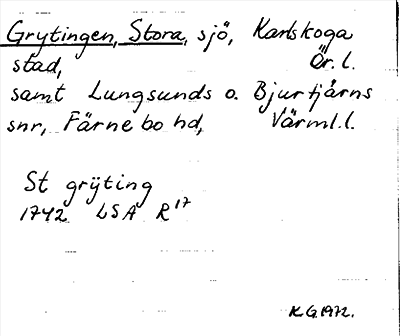 Grytingen, Stora, sjö, Karlskoga
stad, Ör. l.
samt Lungsunds o. Bjurtjärns
snr, Färnebo hd, Värml. l.
St grÿting
1742 LSA R 17
K.G. 1972.